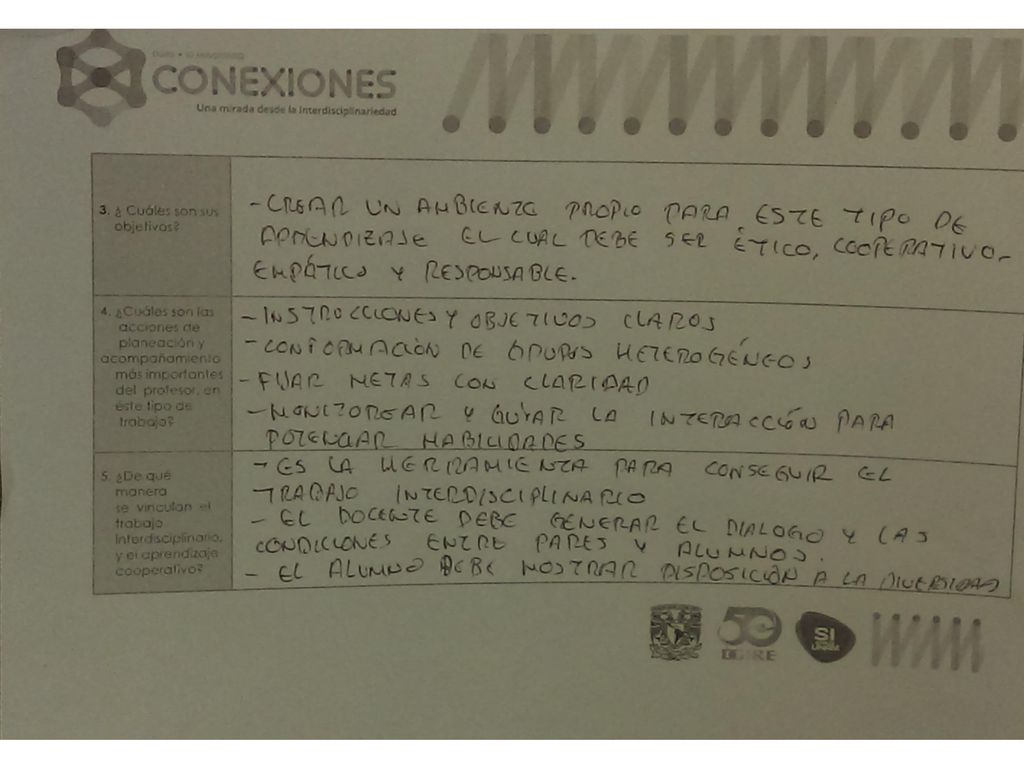 CONEXIONES
Una mirada desde la interdisciplinariedad
3. ¿Cuáles son sus
objetivos?
- CREAR UN AMBIENTE PROPIO PARA ESTE TIPO DE
APRENDIZAJE EL CUAL DEBE SER ÉTICO, COOPERATIVO,
EMPÁTICO Y RESPONSABLE.
4. ¿Cuáles son las
acciones de
planeación y
acompañamiento
más importantes
del profesor, en
éste tipo de
trabajo?
- INSTRUCCIONES Y OBJETIVOS CLAROS
- CONFORMACIÓN DE GRUPOS HETEROGÉNEOS
- FIJAR METAS CON CLARIDAD
- MONITOREAR Y GUIAR LA INTERACCIÓN PARA
POTENCIAR HABILIDADES
5. ¿De qué
manera
se vinculan el
trabajo
interdisciplinario,
y el aprendizaje
cooperativo?
- ES LA HERRAMIENTA PARA CONSEGUIR EL
TRABAJO INTERDISCIPLINARIO
- EL DOCENTE DEBE GENERAR EL DIALOGO Y LAS
CONDICIONES ENTRE PARES Y ALUMNOS.
- EL ALUMNO DEBE MOSTRAR DISPOSICIÓN A LA DIVERSIDAD
50
DGIRE
SI